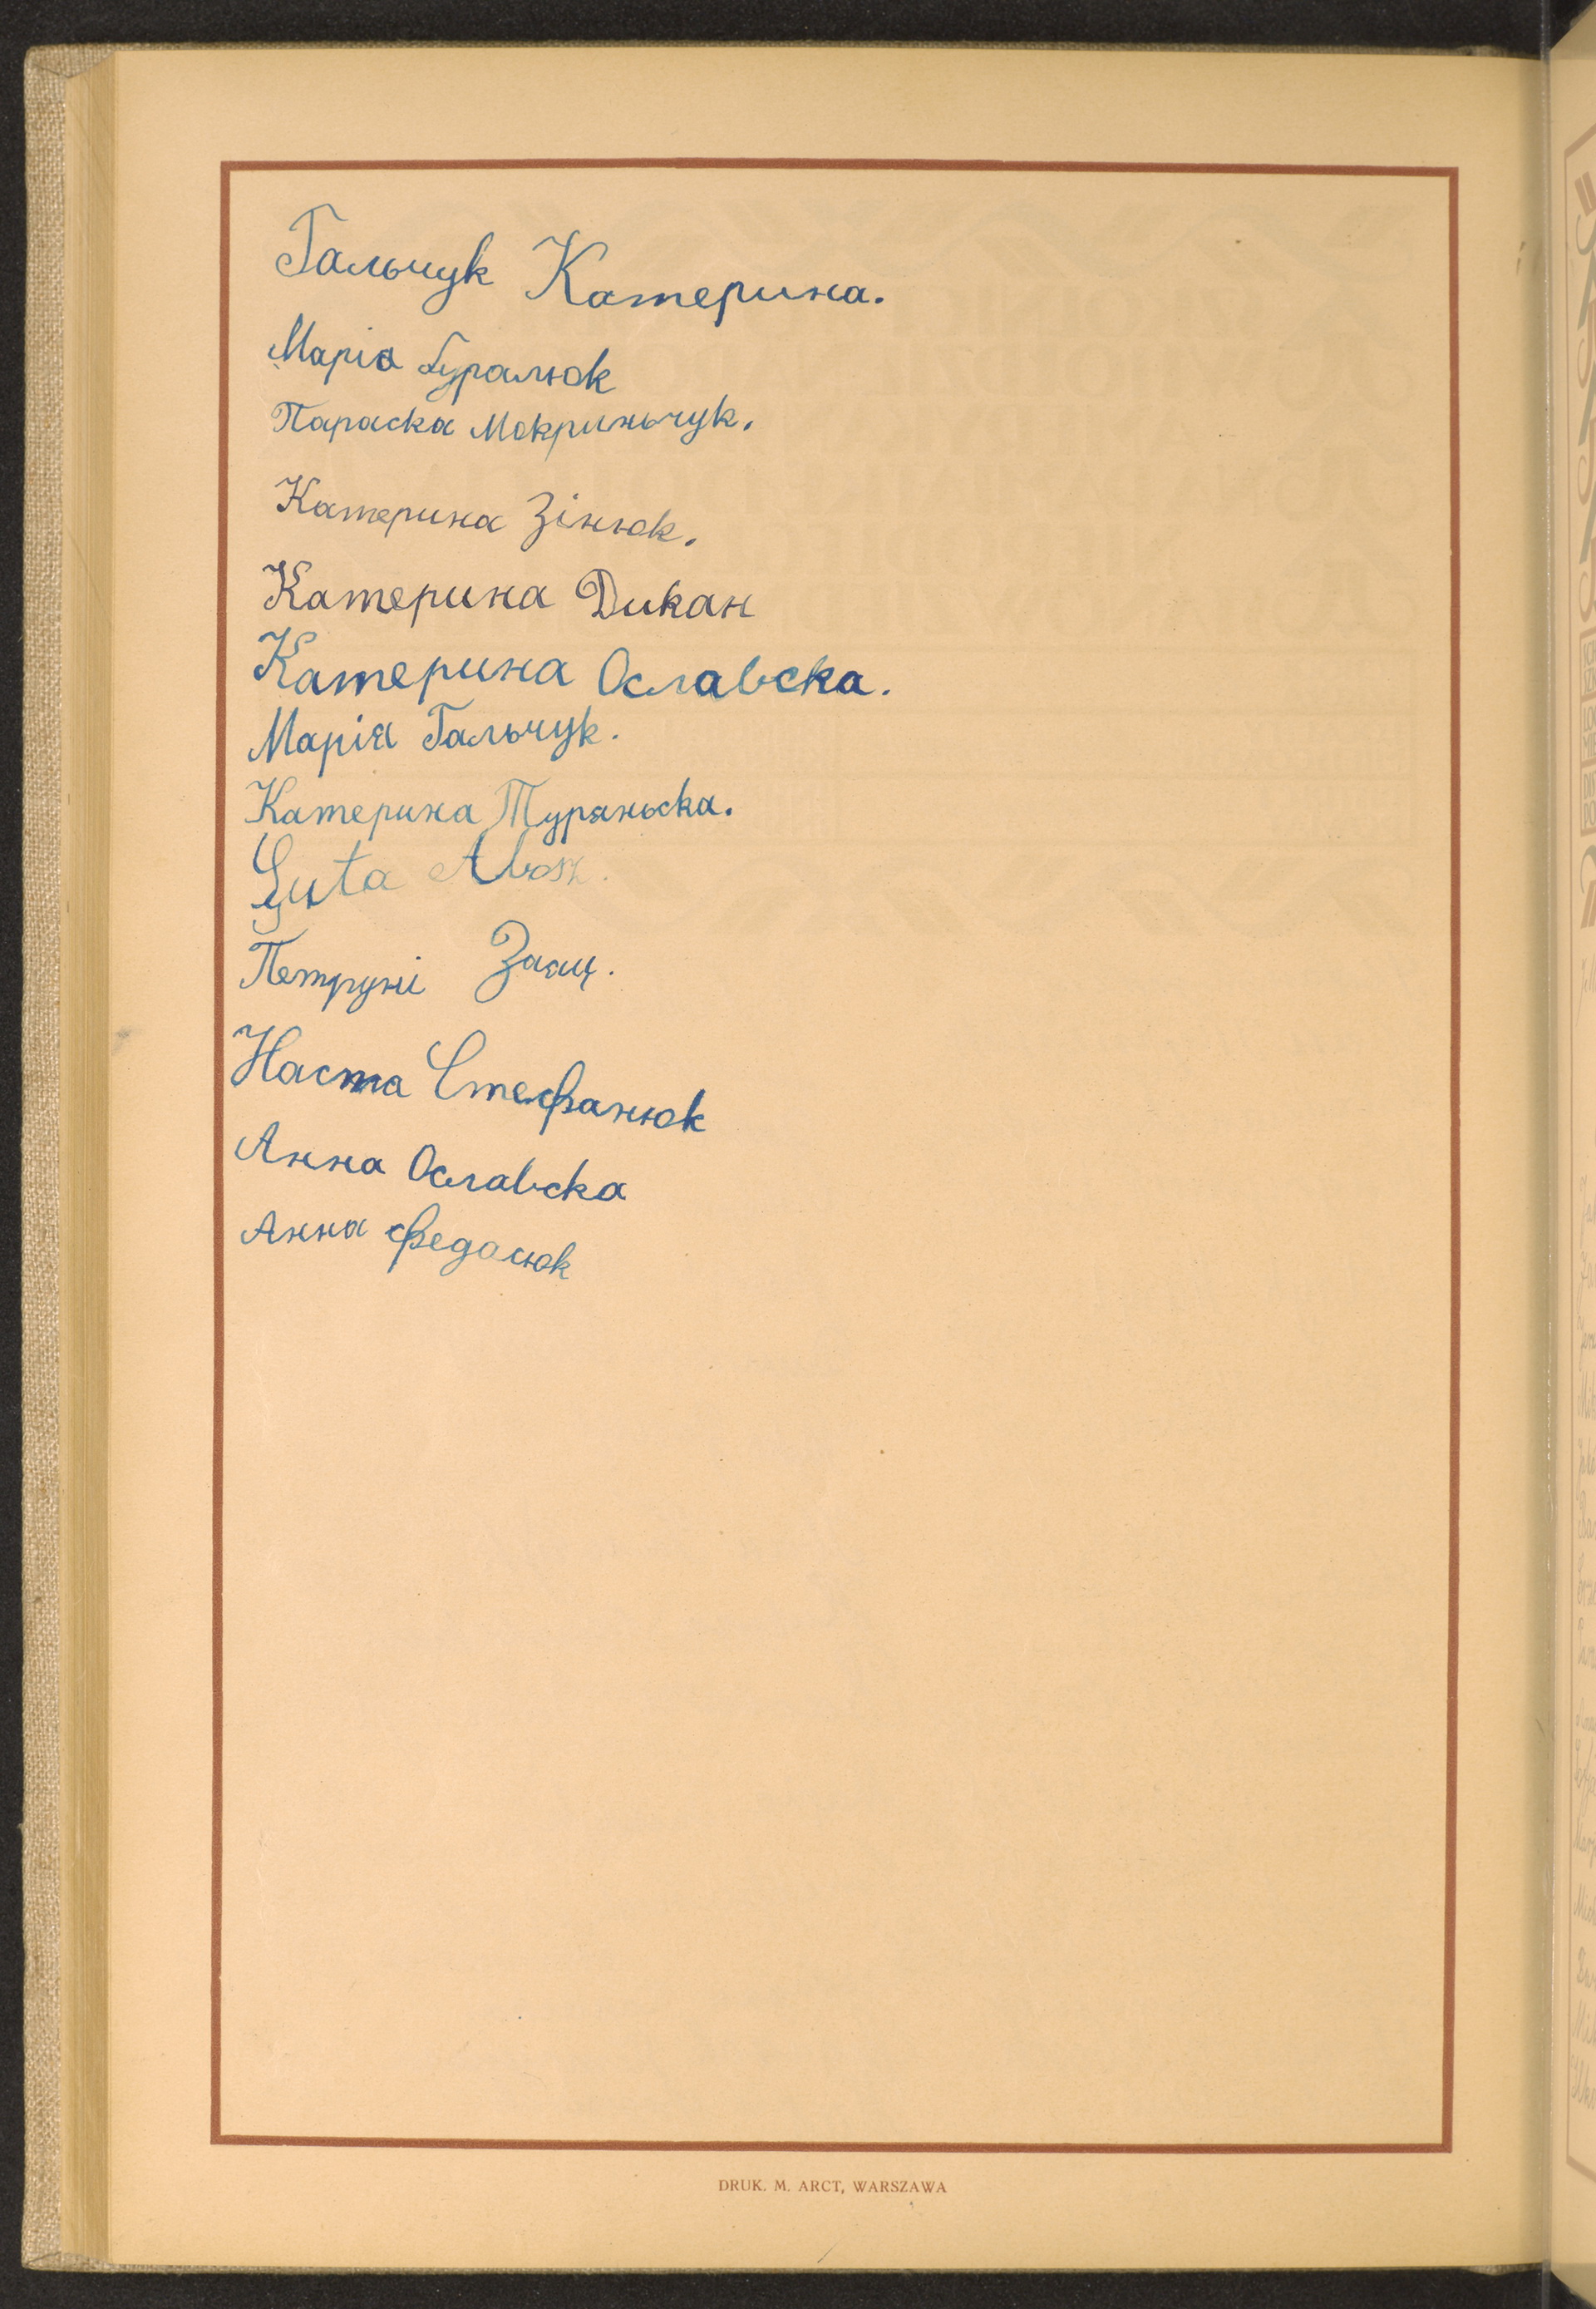 Гальчук Катерина.
Марія Гуралюк
Параска Мокриньчук.
Катерина Зінюк.
Катерина Дикан
Катерина Ославска.
Марія Гальчук.
Катерина Туряньска.
Guta
Петруні Заяц.
Наста Стефанюк
Анна Ославска
Анна Федосюк
DRUK. M. ARCT, WARSZAWA